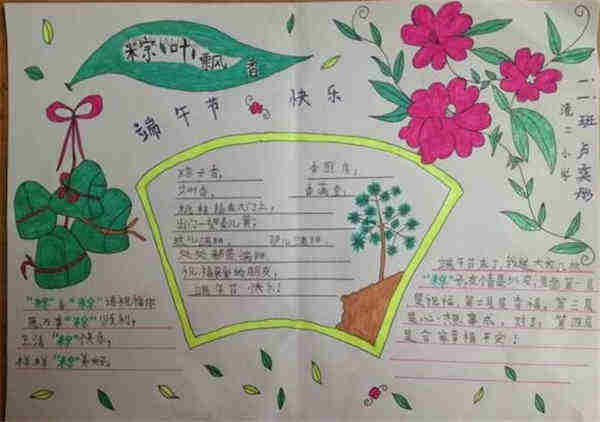 粽叶飘香
端午节 快乐
二.一班 卢奕彤
港二小学
粽子香,
香厨房,
艾叶香,
香满堂,
桃枝插在大门上,
出门一望麦儿黄,
这儿端阳, 那儿端阳,
处处都是端阳
祝福
的朋友,
端午节快乐!
"粽"
"粽"
请祝福你
"粽"
顺利,
生活"粽"
快乐,
样样"粽"
美好,
端午节来了,我送大家几個
"粽"子,
第一层
是祝福,第二层是幸福,第三层
是心想事成,
第四层
是合家幸福平安!